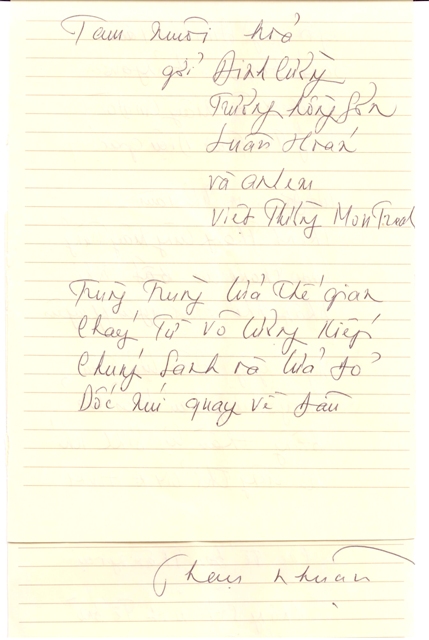 Tam muội hoả
gởi Đinh Cường
Trương Hồng Sơn
Luân Hoán
và anh em
Việt Thường MonTreal
Trùng Trùng lửa thế gian
Cháy Từ vô lượng kiếp
Chúng sanh và lửa đỏ
Dốc núi quay về đâu
Nhuận